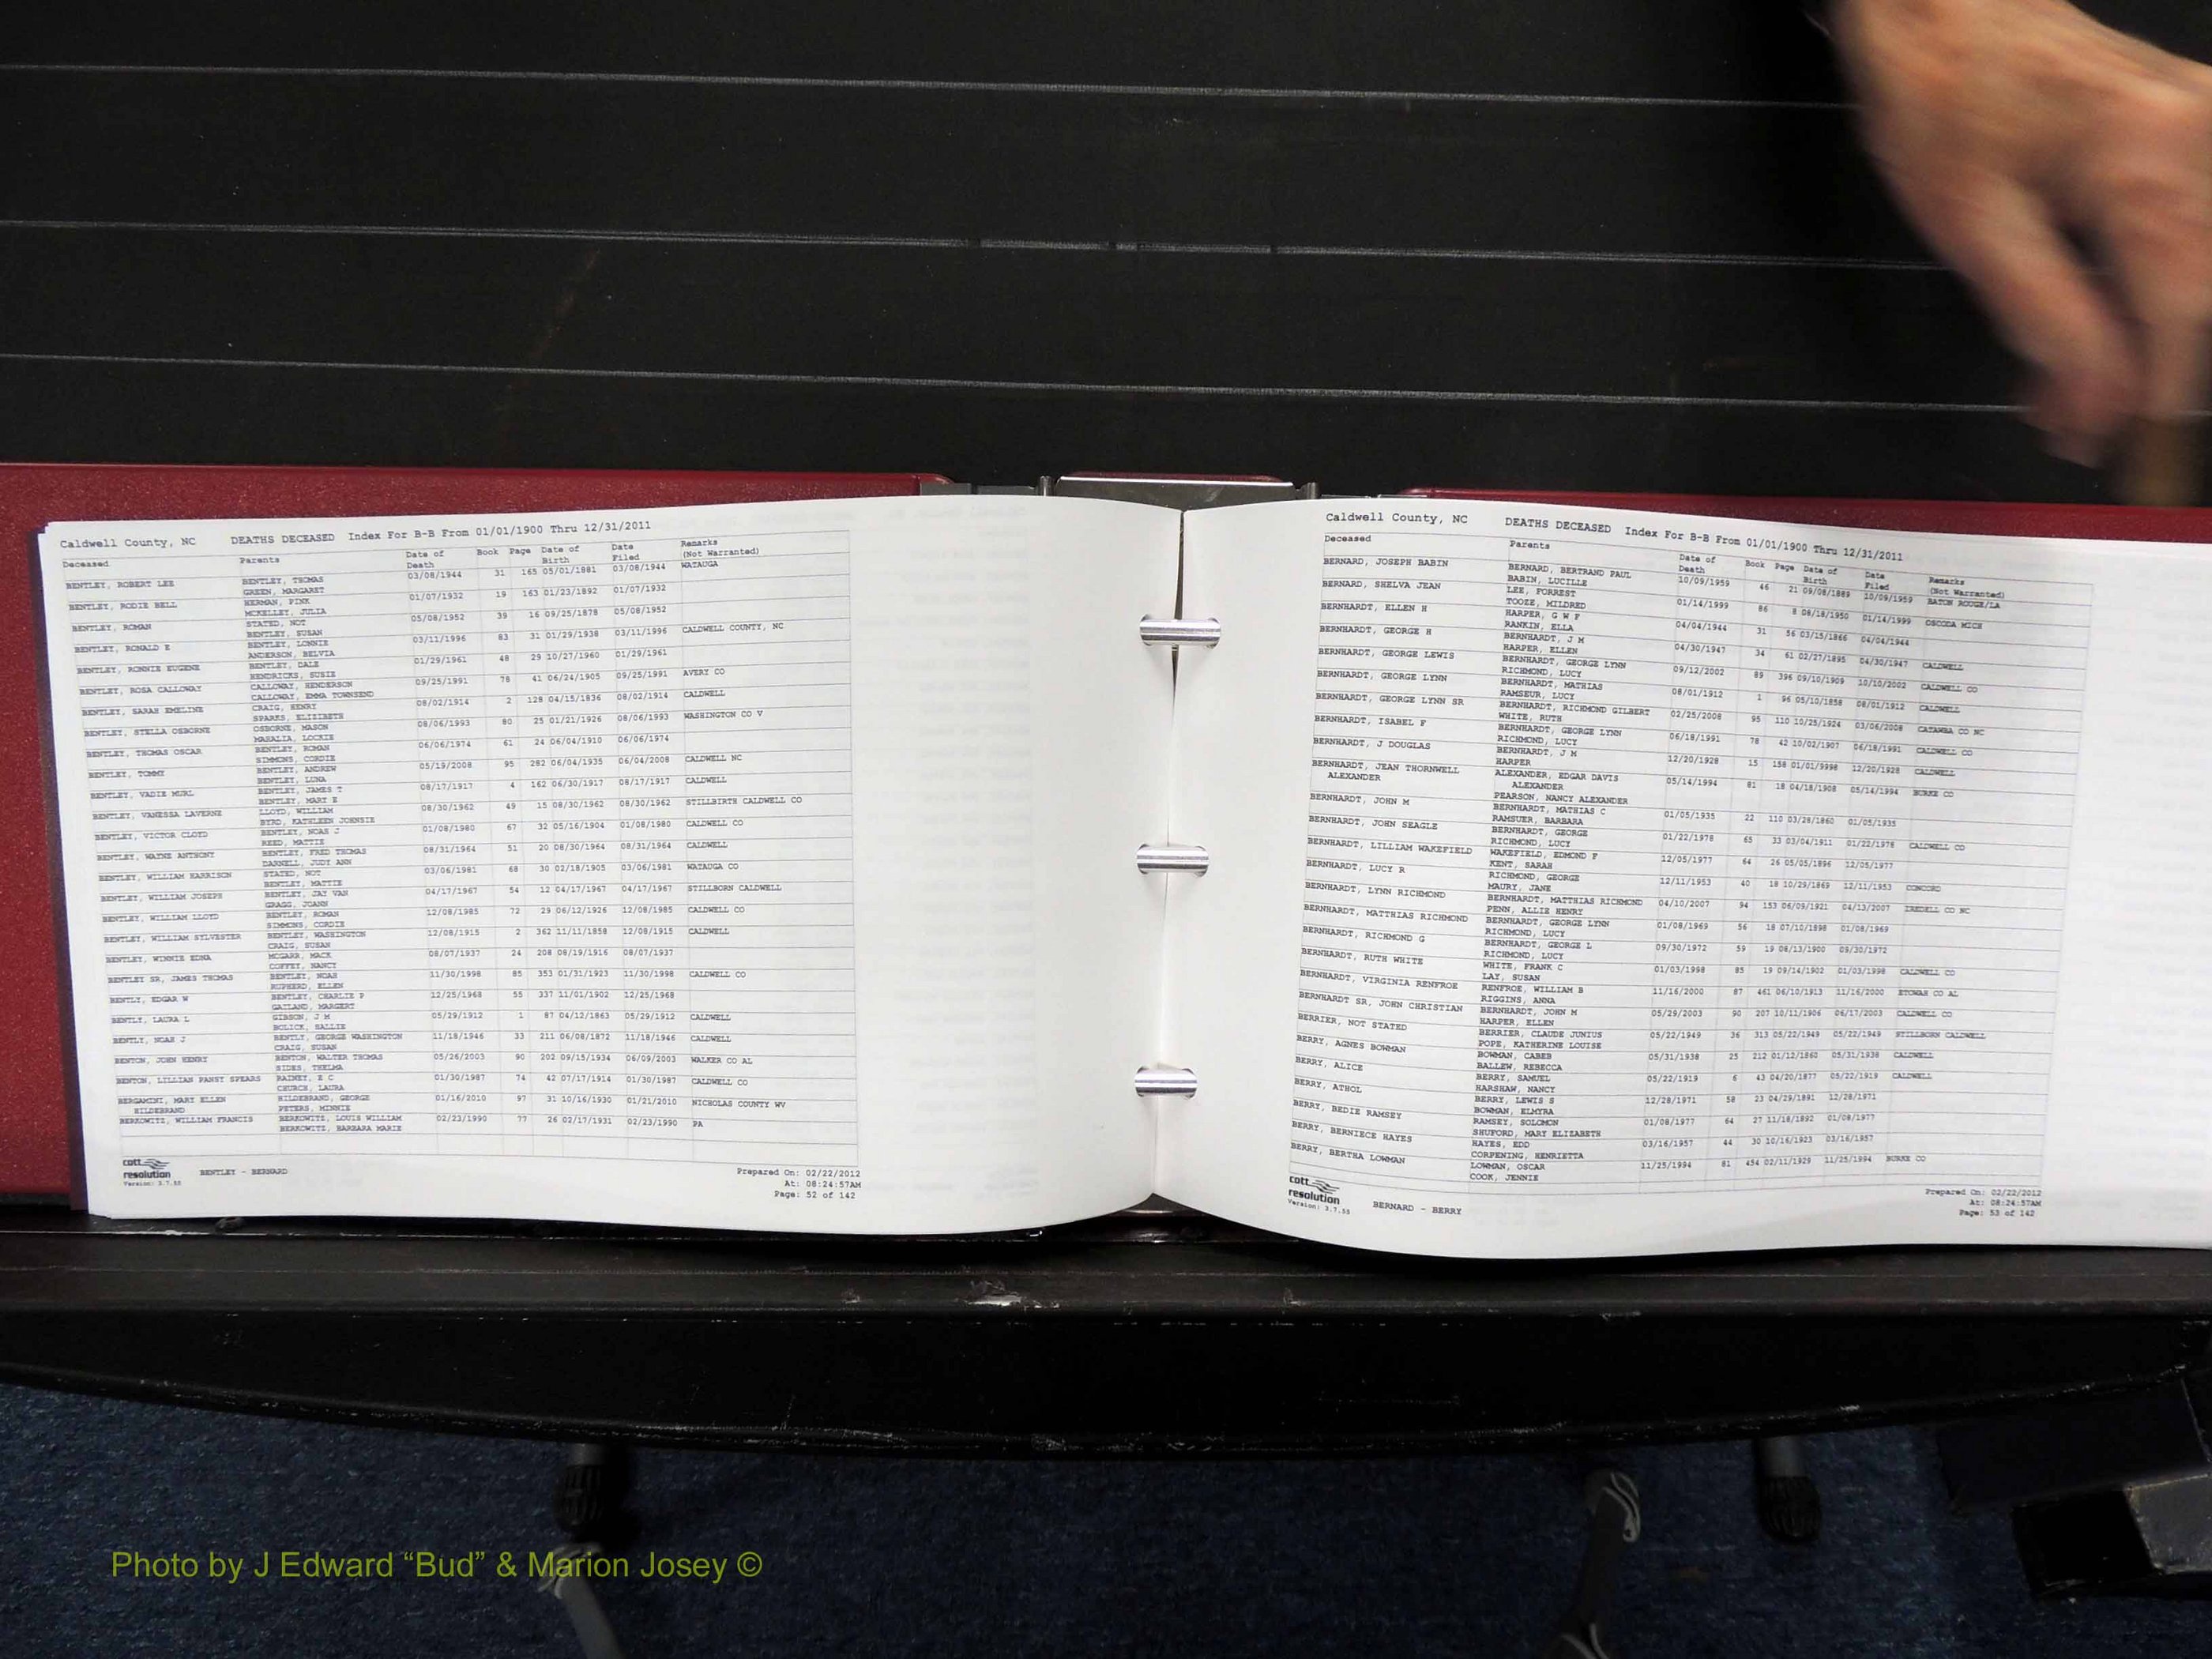 Caldwell County, NC DEATHS DECEASED Index For B-B From 01/01/1900 Thru 12/31/2011
Deceased Parents Date of Death Book Page Date of Birth Date Filed Remarks (Not Warranted)
BENTLEY, ROBERT LEE BENTLEY, THOMAS 03/08/1944 31 165 05/01/1881 03/08/1944 WATAUGA
GREEN, MARGARET
BENTLEY, RODIE BELL HERMAN, PINK 01/07/1932 19 163 01/23/1892 01/07/1932
MCKELLEY, JULIA
BENTLEY, ROMAN STATED, NOT 05/08/1952 39 16 09/25/1878 05/08/1952
BENTLEY, SUSAN
BENTLEY, RONALD E BENTLEY, LONNIE 03/11/1996 83 31 01/29/1938 03/11/1996 CALDWELL COUNTY, NC
ANDERSON, BELVIA
BENTLEY, RONNIE EUGENE BENTLEY, DALE 01/29/1961 48 29 10/27/1960 01/29/1961
HENDRICKS, SUSIE
BENTLEY, ROSA CALLOWAY CALLOWAY, HENDERSON 09/25/1991 78 41 06/24/1905 09/25/1991 AVERY CO
CALLOWAY, EMMA TOWNSEND
BENTLEY, SARAH EMELINE CRAIG, HENRY 08/02/1914 2 128 04/15/1836 08/02/1914 CALDWELL
SPARKS, ELIZIBETH
BENTLEY, STELLA OSBORNE OSBORNE, MASON 08/06/1993 80 25 01/21/1926 08/06/1993 WASHINGTON CO V
MARALIA, LOCKIE
BENTLEY, THOMAS OSCAR BENTLEY, ROMAN 06/06/1974 61 24 06/04/1910 06/06/1974
SIMMONS, CORDIE
BENTLEY, TOMMY BENTLEY, ANDREW 05/19/2008 95 282 06/04/1935 06/04/2008 CALDWELL NC
BENTLEY, LUNA
BENTLEY, VADIE MURL BENTLEY, JAMES T 08/17/1917 4 162 06/30/1917 08/17/1917 CALDWELL
BENTLEY, MARY E
BENTLEY, VANESSA LAVERNE LLOYD, WILLIAM 08/30/1962 49 15 08/30/1962 08/30/1962 STILLBIRTH CALDWELL CO
BYRD, KATHLEEN JOHNSIE
BENTLEY, VICTOR CLOYD BENTLEY, NOAH J 01/08/1980 67 32 05/16/1904 01/08/1980 CALDWELL CO
REED, MATTIE
BENTLEY, WAYNE ANTHONY BENTLEY, FRED THOMAS 08/31/1964 51 20 08/30/1964 08/31/1964 CALDWELL
DARNELL, JUDY ANN
BENTLEY, WILLIAM HARRISON STATED, NOT 03/06/1981 68 30 02/18/1905 03/06/1981 WATAUGA CO
BENTLEY, MATTIE
BENTLEY, WILLIAM JOSEPH BENTLEY, JAY VAN 04/17/1967 54 12 04/17/1967 04/17/1967 STILLBORN CALDWELL
GRAGG, JOANN
BENTLEY, WILLIAM LLOYD BENTLEY, ROMAN 12/08/1985 72 29 06/12/1926 12/08/1985 CALDWELL CO
SIMMONS, CORDIE
BENTLEY, WILLIAM SYLVESTER BENTLEY, WASHINGTON 12/08/1915 2 362 11/11/1858 12/08/1915 CALDWELL
CRAIG, SUSAN
BENTLEY, WINNIE EDNA MCGARR, MACK 08/07/1937 24 208 08/19/1916 08/07/1937
COFFEY, NANCY
BENTLEY SR, JAMES THOMAS BENTLEY, NOAH 11/30/1998 85 353 01/31/1923 11/30/1998 CALDWELL CO
RUPHERD, ELLEN
BENTLY, EDGAR W BENTLEY, CHARLIE P 12/25/1968 55 337 11/01/1902 12/25/1968
GAILAND, MARGERT
BENTLY, LAURA L GIBSON, J M 05/29/1912 1 87 04/12/1863 05/29/1912 CALDWELL
BOLICK, SALLIE
BENTLY, NOAH J BENTLY, GEORGE WASHINGTON 11/18/1946 33 211 06/08/1872 11/18/1946 CALDWELL
CRAIG, SUSAN
BENTON, JOHN HENRY BENTON, WALTER THOMAS 05/26/2003 90 202 09/15/1934 06/09/2003 WALKER CO AL
SIDES, THELMA
BENTON, LILLIAN PANSY SPEARS RAINEY, E C 01/30/1987 74 42 07/17/1914 01/30/1987 CALDWELL CO
CHURCH, LAURA
BERGAMINI, MARY ELLEN HILDEBRAND, GEORGE 01/16/2010 97 31 10/16/1930 01/21/2010 NICHOLAS COUNTY WV
HILDEBRAND PETERS, MINNIE
BERKOWITZ, WILLIAM FRANCIS BERKOWITZ, LOUIS WILLIAM 02/23/1990 77 26 02/17/1931 02/23/1990 PA
BERKOWITZ, BARBARA MARIE
cott resolution
Version: 3.7.55
BENTLEY - BERNARD
Prepared On: 02/22/2012
At: 08:24:57AM
Page: 52 of 142
Caldwell County, NC DEATHS DECEASED Index For B-B From 01/01/1900 Thru 12/31/2011
Deceased Parents Date of Death Book Page Date of Birth Date Filed Remarks (Not Warranted)
BERNARD, JOSEPH BABIN BERNARD, BERTRAND PAUL 10/09/1959 46 21 09/08/1889 10/09/1959 BATON ROUGE/LA
BABIN, LUCILLE
BERNARD, SHELVA JEAN LEE, FORREST 01/14/1999 86 8 08/18/1950 01/14/1999 OSCODA MICH
TOOZE, MILDRED
BERNHARDT, ELLEN H HARPER, G W F 04/04/1944 31 56 03/15/1866 04/04/1944
RANKIN, ELLA
BERNHARDT, GEORGE H BERNHARDT, J M 04/30/1947 34 61 02/27/1895 04/30/1947 CALDWELL
HARPER, ELLEN
BERNHARDT, GEORGE LEWIS BERNHARDT, GEORGE LYNN 09/12/2002 89 396 09/10/1909 10/10/2002 CALDWELL CO
RICHMOND, LUCY
BERNHARDT, GEORGE LYNN BERNHARDT, MATHIAS 08/01/1912 1 96 05/10/1858 08/01/1912 CALDWELL
RAMSEUR, LUCY
BERNHARDT, GEORGE LYNN SR BERNHARDT, RICHMOND GILBERT 02/25/2008 95 110 10/25/1924 03/06/2008 CATAWBA CO NC
WHITE, RUTH
BERNHARDT, ISABEL F BERNHARDT, GEORGE LYNN 06/18/1991 78 42 10/02/1907 06/18/1991 CALDWELL CO
RICHMOND, LUCY
BERNHARDT, J DOUGLAS BERNHARDT, J M 12/20/1928 15 158 01/01/9998 12/20/1928 CALDWELL
HARPER
BERNHARDT, JEAN THORNWELL ALEXANDER, EDGAR DAVIS 05/14/1994 81 18 04/18/1908 05/14/1994 BURKE CO
ALEXANDER ALEXANDER
PEARSON, NANCY ALEXANDER
BERNHARDT, JOHN M BERNHARDT, MATHIAS C 01/05/1935 22 110 03/28/1860 01/05/1935
RAMSUER, BARBARA
BERNHARDT, JOHN SEAGLE BERNHARDT, GEORGE 01/22/1978 65 33 03/04/1911 01/22/1978 CALDWELL CO
RICHMOND, LUCY
BERNHARDT, LILLIAM WAKEFIELD WAKEFIELD, EDMOND F 12/05/1977 64 26 05/05/1896 12/05/1977
KENT, SARAH
BERNHARDT, LUCY R RICHMOND, GEORGE 12/11/1953 40 18 10/29/1869 12/11/1953 CONCORD
MAURY, JANE
BERNHARDT, LYNN RICHMOND BERNHARDT, MATTHIAS RICHMOND 04/10/2007 94 153 06/09/1921 04/13/2007 IREDELL CO NC
PENN, ALLIE HENRY
BERNHARDT, MATTHIAS RICHMOND BERNHARDT, GEORGE LYNN 01/08/1969 56 18 07/10/1898 01/08/1969
RICHMOND, LUCY
BERNHARDT, RICHMOND G BERNHARDT, GEORGE L 09/30/1972 59 19 08/13/1900 09/30/1972
RICHMOND, LUCY
BERNHARDT, RUTH WHITE WHITE, FRANK C 01/03/1998 85 19 09/14/1902 01/03/1998 CALDWELL CO
LAY, SUSAN
BERNHARDT, VIRGINIA RENFROE RENFROE, WILLIAM B 11/16/2000 87 461 06/10/1913 11/16/2000 ETOWAH CO AL
RIGGINS, ANNA
BERNHARDT SR, JOHN CHRISTIAN BERNHARDT, JOHN M 05/29/2003 90 207 10/11/1906 06/17/2003 CALDWELL CO
HARPER, ELLEN
BERRIER, NOT STATED BERRIER, CLAUDE JUNIUS 05/22/1949 36 313 05/22/1949 05/22/1949 STILLBORN CALDWELL
POPE, KATHERINE LOUISE
BERRY, AGNES BOWMAN BOWMAN, CABEB 05/31/1938 25 212 01/12/1860 05/31/1938 CALDWELL
BALLEW, REBECCA
BERRY, ALICE BERRY, SAMUEL 05/22/1919 6 43 04/20/1877 05/22/1919 CALDWELL
HARSHAW, NANCY
BERRY, ATHOL BERRY, LEWIS S 12/28/1971 58 23 04/29/1891 12/28/1971
BOWMAN, ELMYRA
BERRY, BEDIE RAMSEY RAMSEY, SOLOMON 01/08/1977 64 27 11/18/1892 01/08/1977
SHUFORD, MARY ELIZABETH
BERRY, BERNIECE HAYES HAYES, EDD 03/16/1957 44 30 10/16/1923 03/16/1957
CORPENING, HENRIETTA
BERRY, BERTHA LOWMAN LOWMAN, OSCAR 11/25/1994 81 454 02/11/1929 11/25/1994 BURKE CO
COOK, JENNIE
cott resolution
Version: 3.7.55
BERNARD - BERRY
Prepared On: 02/22/2012
At: 08:24:57AM
Page: 53 of 142
Photo by J Edward “Bud” & Marion Josey ©